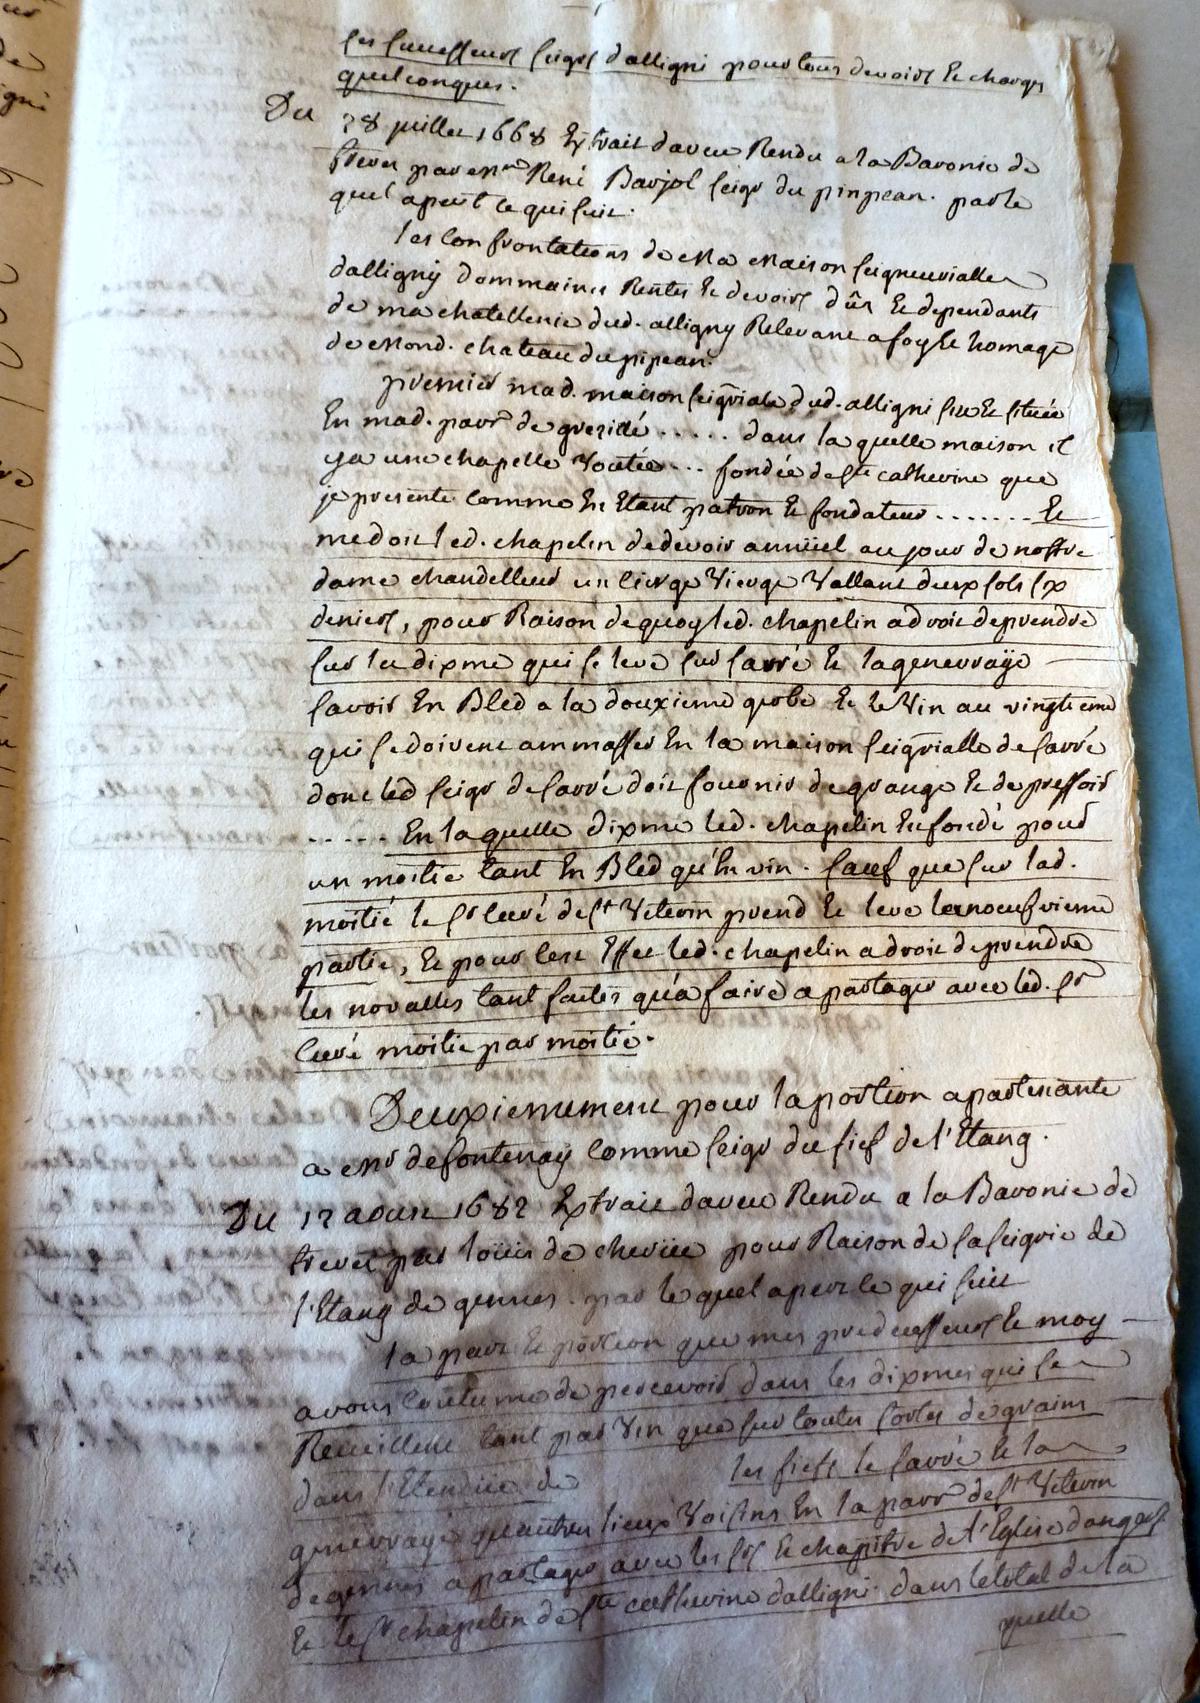 ses successeurs seigrs d'alligni pour tous devoirs Et charges
quelconques.
Du 28 juillet 1668 Extrait daveu Rendu a la Baronie de
trevet par Mre René Barjol seigr du pinpean. par le
quel apert ce qui suit.
les Confrontations de Ma Maison seigneurialle
dalligny dommaines Rentes Et devoirs dûs Et dependants
de ma chatellenie dud. alligny Relevant a foy Et homage
de Mond. chateau du pipean.
premier mad. maison seigriale dud. alligni sise Et située
En mad. paroisse de grezillé ..... dans la quelle maison il
ya une chapelle Voutée ... fondée de Ste catherine que
je presente comme En Etant patron Et fondateur ....... Et
me doit led. chapelin de devoir annüel au jour de nostre
dame chandelleur un cierge Vierge Vallant deux sols six
deniers, pour Raison de quoy led. chapelin a droit de prendre
sur la dixme qui se leve sur sarré Et la genevraÿe
savoir En Bled a la douxieme gerbe Et le Vin au vingtieme
qui se doivent ammasser En la maison seigrialle de sarré
dont led seigr de sarré doit fournir de grange Et de pressoir
..... En laquelle dixme led. chapelin Est fondé pour
un moitie tant En Bled qu'En vin. sauf que sur lad.
moitié le Sr curé de St Veterin prend Et leve la neufvieme
partie, Et pour cest Effet led. chapelin a droit de prendre
les novalles tant faites qu'a faire a partager avec led. Sr
curé moitie par moitié.
Deuxiemement pour la portion apartenante
a Mr de fontenay comme seigr du fief de l'Etang.
Du 12 aoust 1682 Extrait daveu Rendu a la Baronie de
trevet par loüis de cherüe pour Raison de sa seigrie de
l'Etang de gennes. par le quel apert ce qui suit
la part Et portion que mes predecesseurs Et moy
avons coutume de percevoir dans les dixmes qui se
Recuillent tant par Vin que sur toutes sortes de grains
dans l'Etendüe de les fiefs le sarré Et la
genevraye qu'autres lieux Voisins En la paroisse de St Veterin
de gennes a partager avec les Srs Et chapitre de l'Eglise dangers
Et le Sr chapelin de Ste catherine dalligni. dans le total de la
quelle